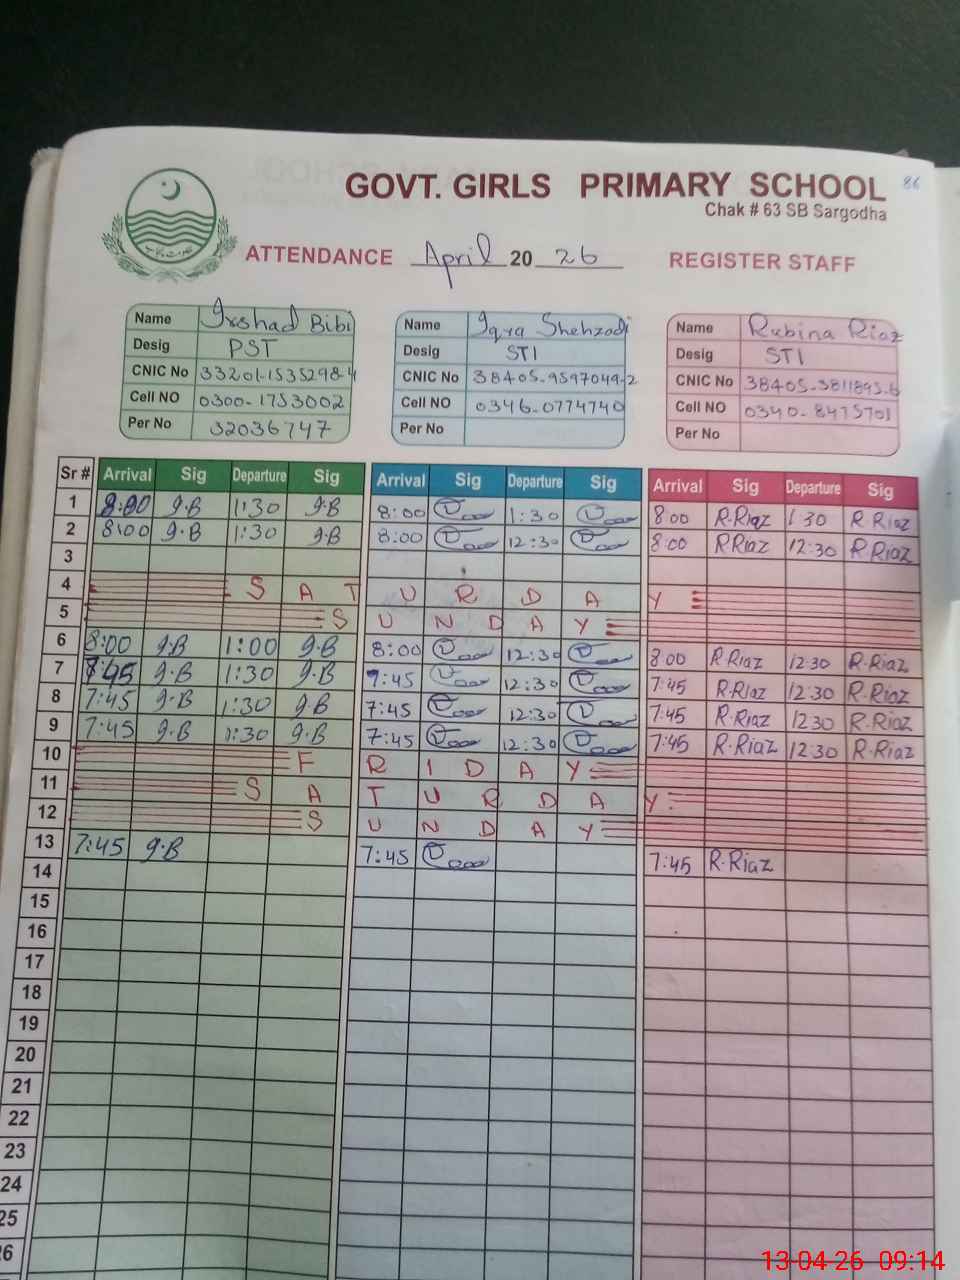 86
GOVT. GIRLS PRIMARY SCHOOL
Chak # 63 SB Sargodha
ATTENDANCE April 20 26 REGISTER STAFF
Name Irshad Bibi
Desig PST
CNIC No 33201-1535298-4
Cell NO 0300-1753002
Per No 32036747
Name Iqra Shehzadi
Desig STI
CNIC No 38405-9597049-2
Cell NO 0346-0774740
Per No
Name Rubina Riaz
Desig STI
CNIC No 38405-3811895-6
Cell NO 0340-8475701
Per No
Sr # Arrival Sig Departure Sig Arrival Sig Departure Sig Arrival Sig Departure Sig
1 8:00 I.B 1:30 I.B 8:00 1:30 8:00 R.Riaz 1:30 R.Riaz
2 8:00 I.B 1:30 I.B 8:00 12:30 8:00 R.Riaz 12:30 R.Riaz
3
4 S A T U R D A Y
5 S U N D A Y
6 8:00 I.B 1:00 I.B 8:00 12:30 8:00 R.Riaz 12:30 R.Riaz
7 7:45 I.B 1:30 I.B 7:45 12:30 7:45 R.Riaz 12:30 R.Riaz
8 7:45 I.B 1:30 I.B 7:45 12:30 7:45 R.Riaz 12:30 R.Riaz
9 7:45 I.B 1:30 I.B 7:45 12:30 7:45 R.Riaz 12:30 R.Riaz
10 F R I D A Y
11 S A T U R D A Y
12 S U N D A Y
13 7:45 I.B 7:45 7:45 R.Riaz
14
15
16
17
18
19
20
21
22
23
24
25
26
13-04-26 09:14